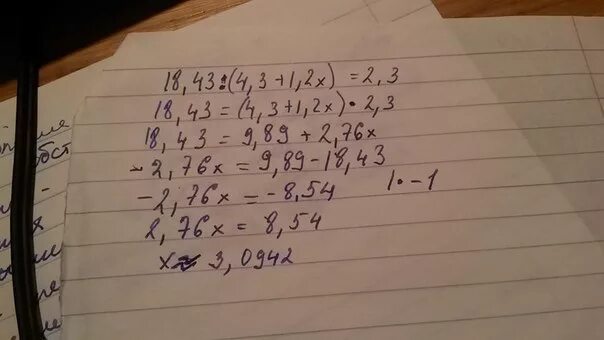 18,43:(4,3+1,2x) = 2,3
18,43=(4,3+1,2x)·2,3
18,43 = 9,89 + 2,76x
-2,76x = 9,89-18,43
-2,76x = -8,54 |·-1
2,76x = 8,54
x≈3,0942